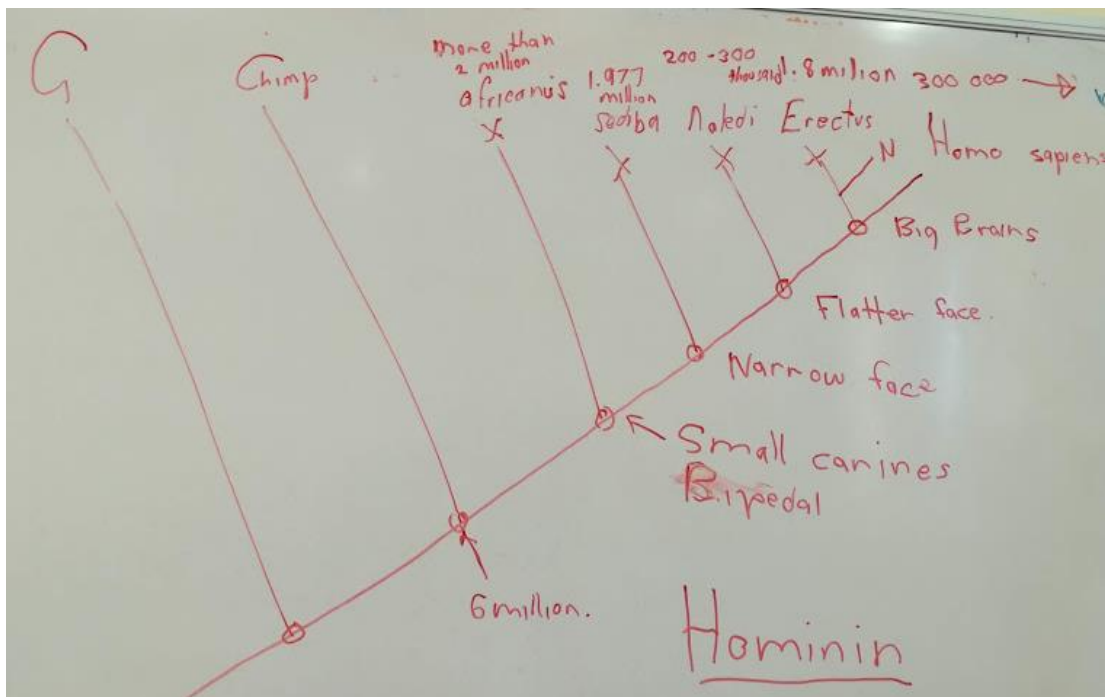 G
Chimp
more than
2 million
africanus
X
1.977
million
Sediba
X
200 - 300
thousand
Naledi
X
1.8 million
Erectus
X
N
300 000 →
Homo sapiens
Big Brains
Flatter face.
Narrow face
Small canines
Bipedal
6 million.
Hominin